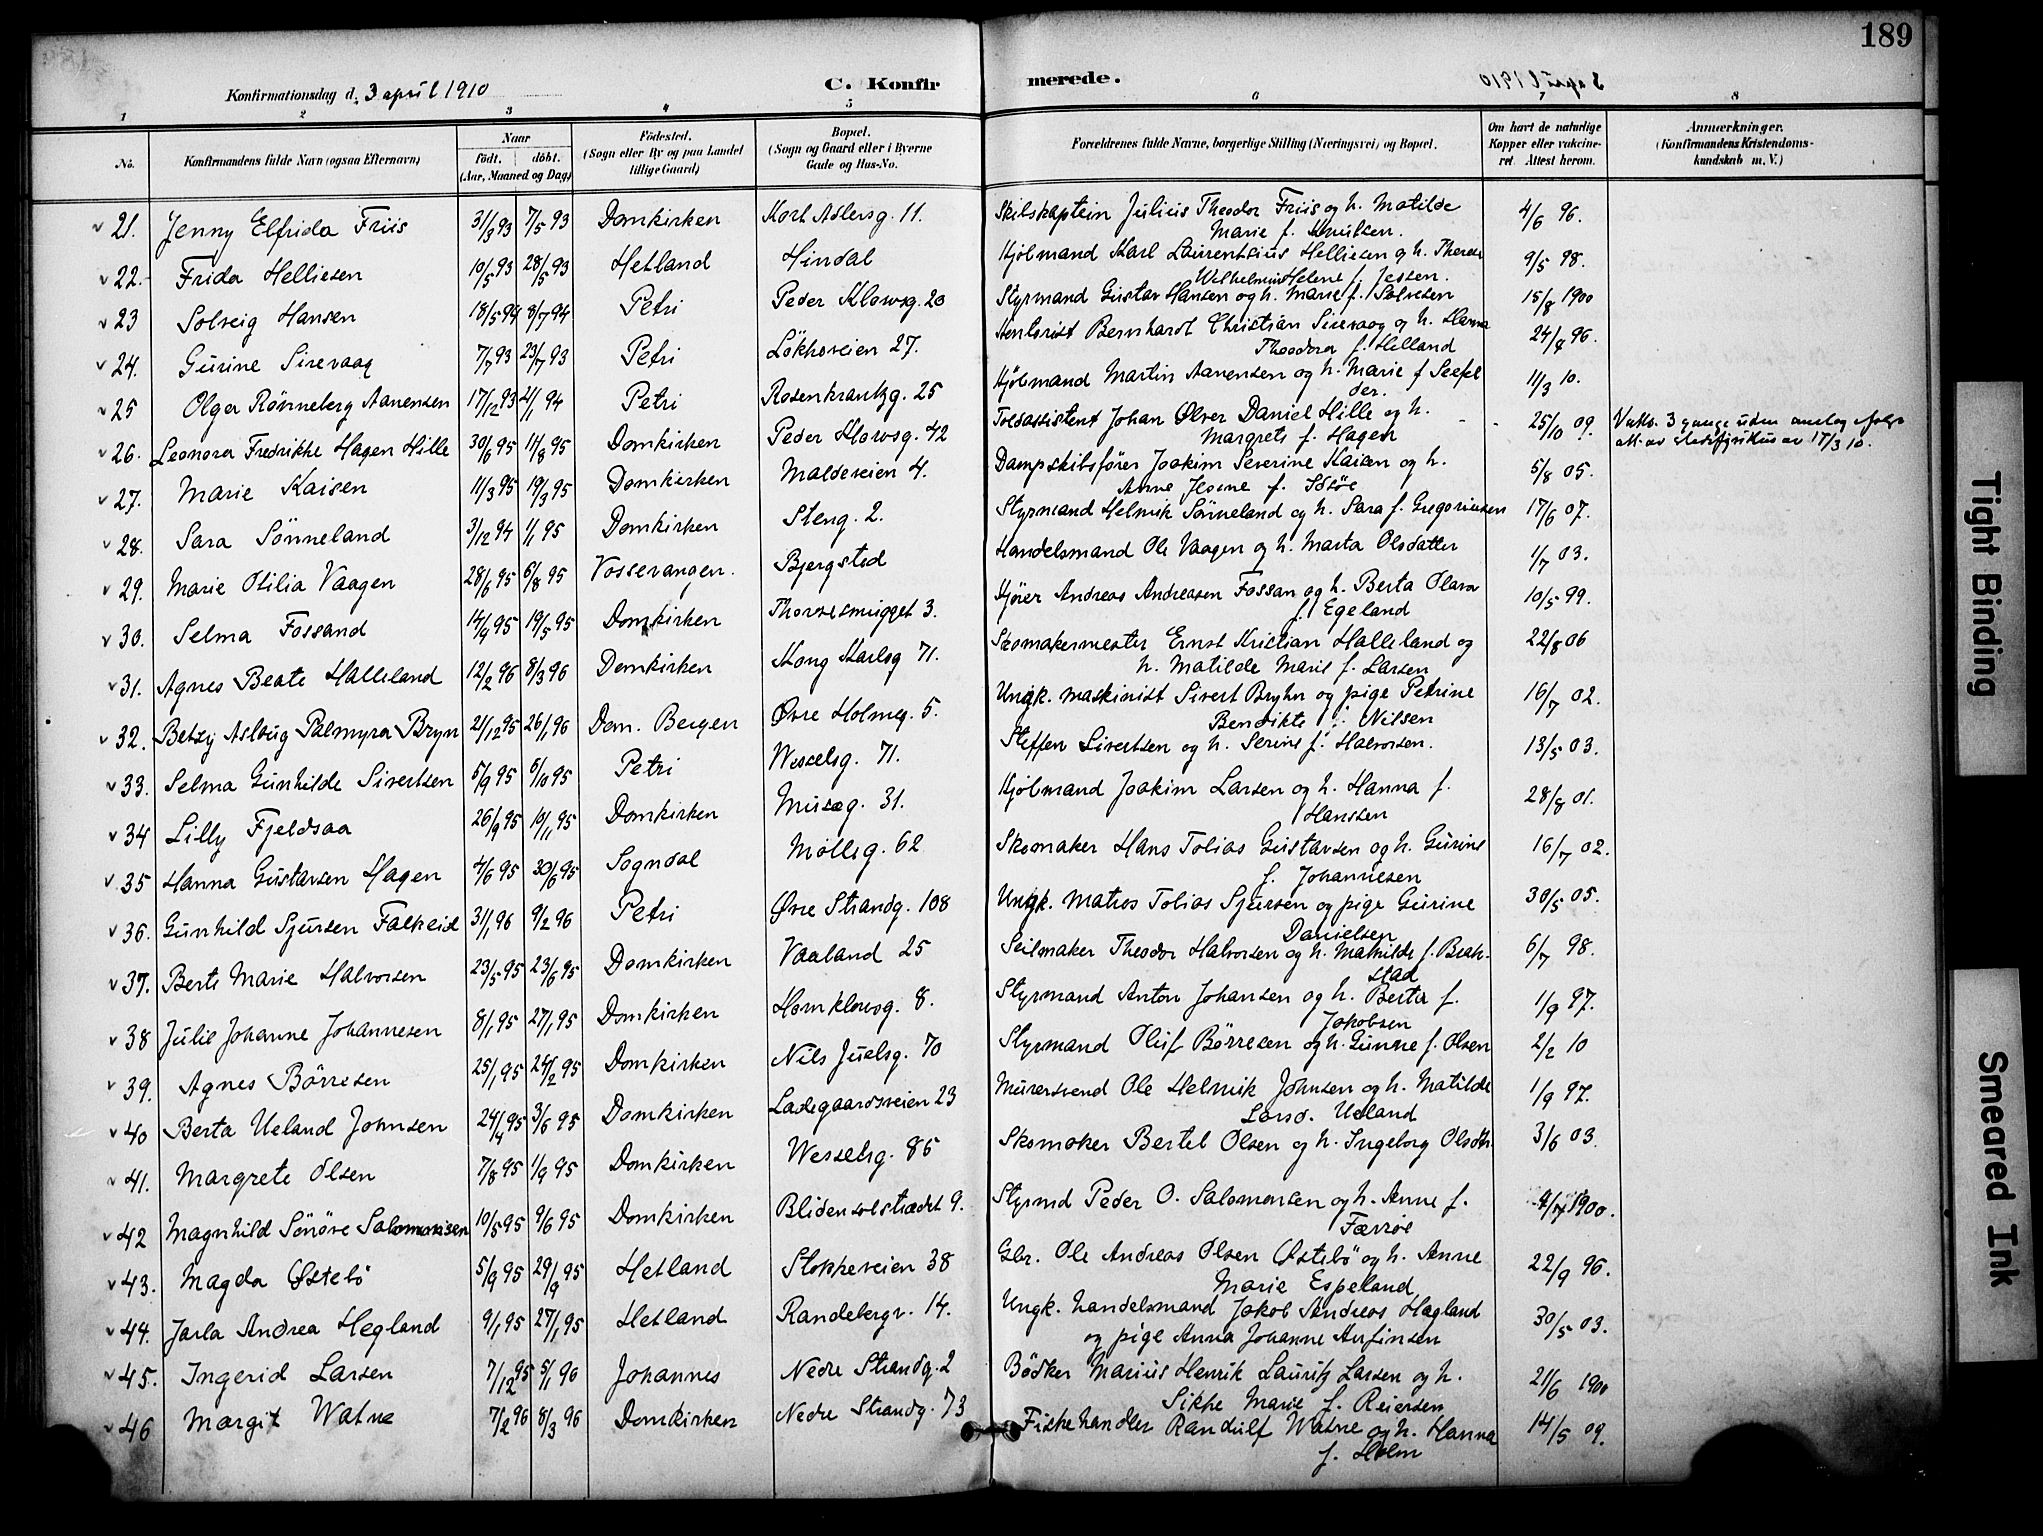 189
Konfirmationsdag d. 3 april 1910
C. Konfirmerede.
3 april 1910
1 2 3 4 5 6 7 8
No. | Konfirmandens fulde Navn (ogsaa Efternavn) | Naar født. døbt. (Aar, Maaned og Dag) | Födested. (Sogn eller By og paa Landet tillige Gaard) | Bopæl. (Sogn og Gaard eller i Byerne Gade og Hus-No. | Forældrenes fulde Navne, borgerlige Stilling (Næringsvei) og Bopæl. | Om havt de naturlige Kopper eller vakcineret. Attest herom. | Anmærkninger. (Konfirmandens Kristendomskundskab m. V.)
21. Jenny Elfrida Friis 31/3 93 7/5 93 Domkirken Kort Adlersg. 11. Skibskaptein Julius Theodor Friis og h. Matilde Marie f. Knutsen. 4/6 96.
22. Frida Helliesen 10/5 93 28/5 93 Hetland Hindal Kjøbmand Karl Laurentsius Helliesen og h. Therese Wilhelmine Helene f. Jessen. 9/5 98.
23 Solveig Hansen 18/5 94 8/7 94 Petri Peder Klowsg. 20 Styrmand Gustav Hansen og h. Marie f. Salvesen 15/8 1900
24. Gurine Sirevaag 7/7 93 23/7 93 Petri Løkkeveien 27. Kontorist Bernhardt Christian Sirevaag og h. Hanna Theodora f. Helland 24/8 96.
25 Olga Rønneberg Aanensen 17/12 93 21/1 94 Petri Rosenkrantzg. 25 Kjøbmand Martin Aanensen og h. Marie f Seefelder. 11/3 10.
26. Leonora Fredrikke Hagen Hille 30/6 95 11/8 95 Domkirken Peder Klowsg. 42 Toldassistent Johan Olver Daniel Hille og h. Margrete f. Hagen 25/10 09. Vakc. 3 gange uden anslag ifølge att. av stadsfysikus av 17/3 10.
27. Marie Kaisen 11/3 95 19/3 95 Domkirken Maldeveien 4. Dampskibsfører Joakim Severine Kaisen og h. Anne f. Idsøe 5/8 05.
28. Sara Sönneland 3/12 94 1/1 95 Domkirken Steng. 2. Styrmand Helmik Sönneland og h. Sara f. Gregoriussen 17/6 07.
29. Marie Otilia Vaagen 28/6 95 6/8 95 Vossevangen. Bjergsted Handelsmand Ole Vaagen og h. Marta Olsdatter 1/7 03.
30. Selma Fossand 14/4 95 19/5 95 Domkirken Thorsesmugget 3. Kjører Andreas Andreasen Fossan og h. Berta Olava f. Egeland 10/5 99.
31. Agnes Beate Halleland 12/2 96 8/3 96 Domkirken Kong Karlsg 71. Skomakermester Ernst Kristian Halleland og h. Matilde Marie f. Larsen 22/8 06
32. Betzy Aslaug Palmyra Bryn 21/12 95 26/1 96 Dom. Bergen Øvre Holmeg. 5. Ungk. maskinist Sivert Bryhn og pige Petrine Bendikte f. Nilsen 16/7 02.
33. Selma Gunhilde Sivertsen 5/9 95 6/10 95 Petri Wesselsg. 71. Steffen Sivertsen og h. Serine f. Halvorsen. 13/5 03.
34 Lilly Fjeldsaa 26/9 95 10/11 95 Domkirken Museg. 31. Kjøbmand Joakim Larsen og h. Hanna f. Hanssen 28/8 01.
35 Hanna Gustavsen Hagen 4/6 95 30/6 95 Sogndal Møllsg. 62 Skomaker Hans Tobias Gustavsen og h. Gurine f. Johannesen 16/7 02.
36. Gunhild Sjursen Falkeid 3/1 96 9/2 96 Petri Øvre Strandg. 108 Ungk. Matros Tobias Sjursen og pige Gurine Danielsen 30/5 05.
37. Berte Marie Halvorsen 23/5 95 23/6 95 Domkirken Vaaland 25 Seilmaker Theodor Halvorsen og h. Mathilde f. Beakstad 6/7 98.
38 Julie Johanne Johannesen 8/1 95 27/1 95 Domkirken Hornklowsg. 8. Styrmand Anton Johansen og h. Berta f. Jakobsen 1/9 97.
39. Agnes Börresen 25/1 95 24/2 95 Domkirken Nils Juelsg. 70 Styrmand Oluf Börresen og h. Gunne f. Olsen 2/2 10
40 Berta Ueland Johnsen 24/4 95 3/6 95 Domkirken Ladegaardsveien 23 Murersvend Ole Helmik Johnsen og h. Matilde Larsd. Ueland 1/9 97.
41. Margrete Olsen 7/8 95 1/9 95 Domkirken Wesselsg. 85 Skomaker Bertel Olsen og h. Ingeborg Olsdtr. 3/6 03.
42 Magnhild Sönöve Salomonsen 10/5 95 9/6 95 Domkirken Blidensolstrædet 9. Styrmd Peder O. Salomonsen og h. Anne f. Færöe 4/7 1900.
43. Magda Østebö 5/9 95 29/9 95 Hetland Stokkeveien 38 Gbr. Ole Andreas Olsen Østebö og h. Anne Marie Espeland 22/9 96.
44. Jarla Andrea Hegland 9/1 95 27/1 95 Hetland Randebergv. 14. Ungk. handelsmand Jakob Andreas Hagland og pige Anna Johanne Anfinsen 30/5 03.
45. Ingerid Larsen 7/12 95 5/1 96 Johannes Nedre Strandg. 2 Bödker Marius Henrik Lauritz Larsen og h. Sikke Marie f. Reiersen 21/6 1900
46 Margit Watne 7/2 96 8/3 96 Domkirken Nedre Strandg. 73 Fiskehandler Randulf Watne og h. Hanna f. Holm 14/5 09.
Tight Binding
Smeared Ink